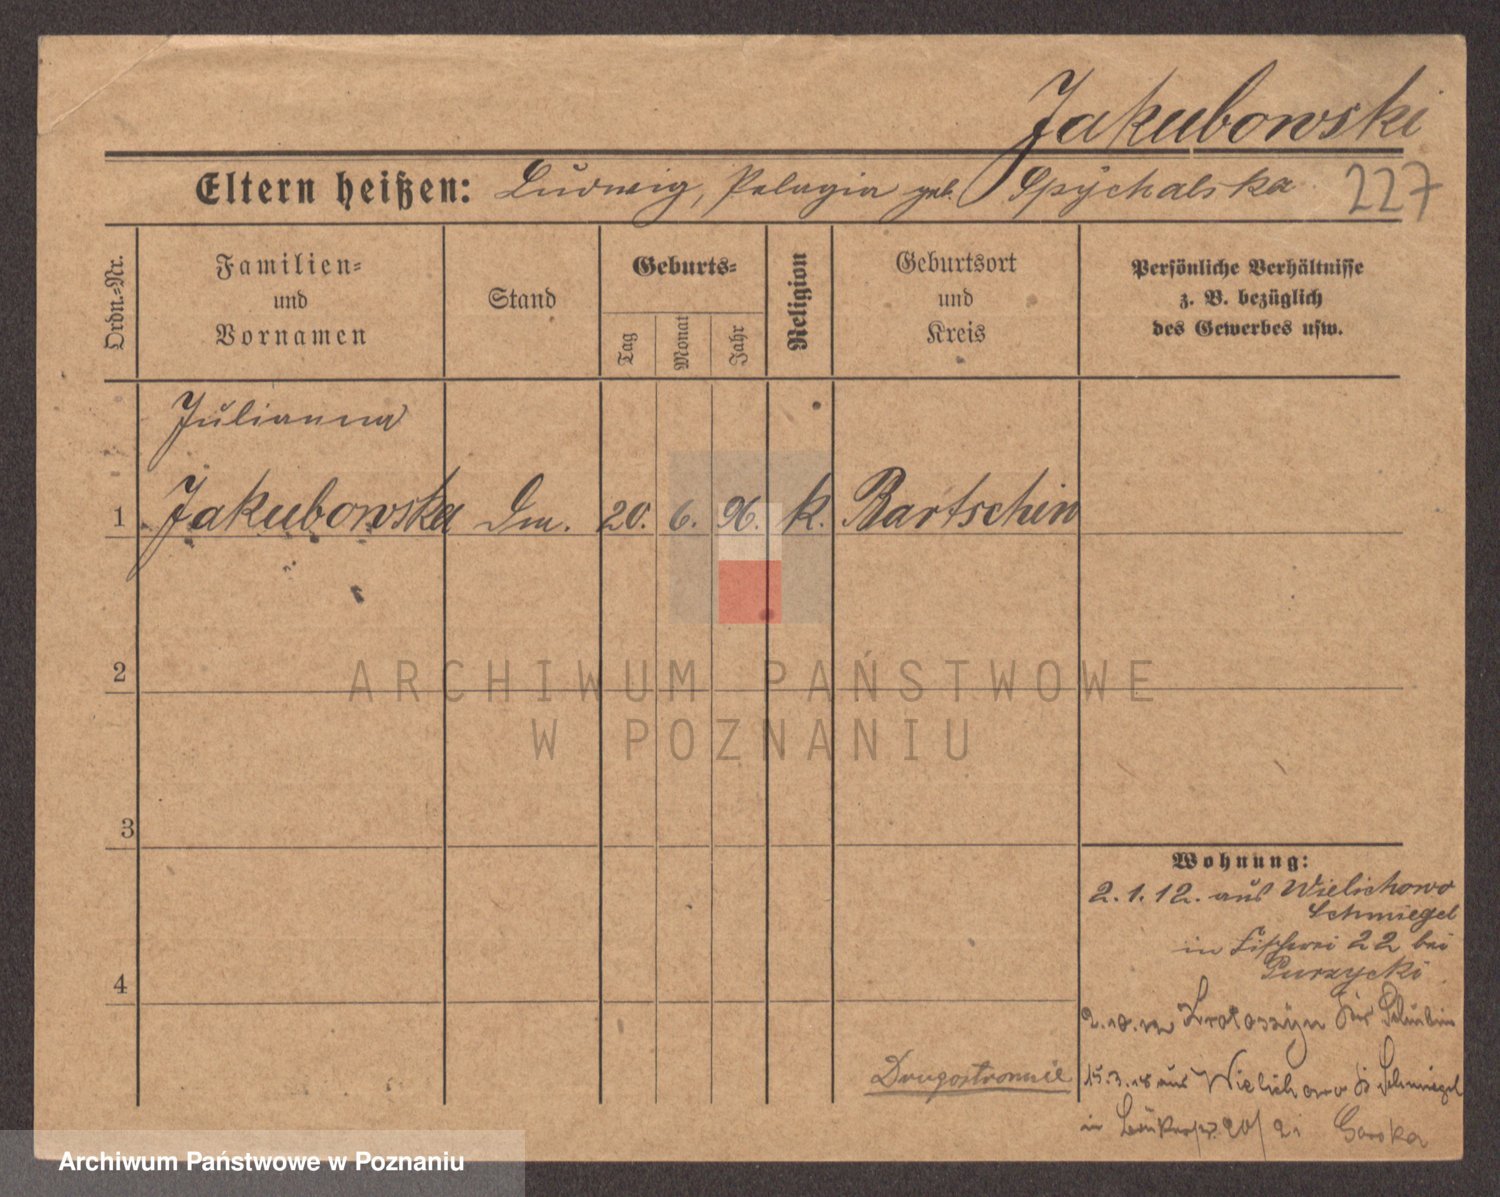 Jakubowski
Eltern heißen: Ludwig, Pelagia geb. Spychalska 227
Ordn.=Nr.
Familien=
und
Vornamen
Stand
Geburts=
Tag
Monat
Jahr
Religion
Geburtsort
und
Kreis
Persönliche Verhältnisse
z. B. bezüglich
des Gewerbes usw.
Julianna
1 Jakubowska Dm. 20. 6. 96. k. Bartschin
2
3
4
Wohnung:
2.1.12. aus Wielichowo
Schmiegel
in Fischerei 22 bei
Purzycki
2.10.12 Schubin
15.3.18 aus Wielichowo Schmiegel
in 20/21 Gorska
Drugostronnie
ARCHIWUM PAŃSTWOWE
W POZNANIU
Archiwum Państwowe w Poznaniu